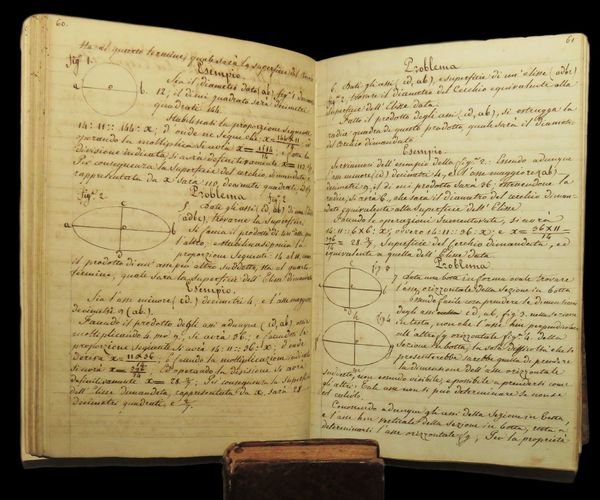 60.
Sta al quarto termine, quale sarà la superficie del
fig.ª 1.
Esempio.
Sia il diametro dato (ab) fig.ª 1. decimetri
a
b
12, il di cui quadrato sarà decimetri
quadrati 144
Stabilirasi la proporzione seguente
14:11::144:x; d'onde ne segue che x=144×11/14, ed
operando la moltiplica si avrà x=1584/14; e fatta la
divisione indicata, si avrà definitivamente x=113
Per conseguenza la superficie del cerchio dimandata e
rappresentata da x sarà 113, decimetri quadrati
Problema
fig.ª 2
c
a
b
d
5. Dati gli assi (cd, ab) di una Elisse
(adbc), trovarne la superficie.
Si formi il prodotto di
l'altro; e stabiliscasi poi la
proporzione seguente: 14 al 11, come
il prodotto di un'ampio altro suddetto, sta al quarto
termine, quale sarà la superficie dell'Elisse dimandata
Esempio.
Sia l'asse minore (cd) decimetri 4, e l'asse maggiore
decimetri 9 (ab).
Facendo il prodotto degli assi adunque (cd, ab) ossia
moltiplicando 4 per 9, si avrà 36; e facendosi la
proporzione seguente si avrà 14:11::36:x; d'onde
deriva x=11×36/14; e facendo la moltiplicazione indicata
si avrà x=396/14. Ed operando la divisione si avrà
definitivamente x=28 2/7. Per conseguenza la superficie
dell'Elisse dimandata, rappresentata da x, sarà 28
decimetri quadrati e 2/7.
61
Problema
6. Dati gli assi (cd, ab), e superficie di un'elisse (adbc)
fig.ª 2, trovare il diametro del Cerchio equivalente alla
superficie dell'Elisse data.
Fatto il prodotto degli assi (cd, ab), si estragga la
radice quadra di questo prodotto, quale sarà il diametro
del cerchio dimandato
Esempio.
Serviamoci dell'esempio della fig.ª 2. Essendo adunque
l'asse minore (cd) decimetri 4, e l'asse maggiore (ab)
decimetri 9, il di cui prodotto sarà 36; estraendone la
radice, si avrà 6, che sarà il diametro del cerchio diman-
dato equivalente alla superficie dell'Elisse.
Facendo le operazioni summentovate, si avrà
14:11::6×6:x, ovvero 14:11::36:x; e x=36×11/14
396/14 = 28 2/7, superficie del Cerchio dimandata, ed
equivalente a quella dell'Elisse data.
Problema
fig.ª 3
7. Data una botte in forma ovale trovare
l'asse orizzontale della sezione in botta
essendo facile cosa prendere le dimensioni
degli assi cd, ab, fig.ª 3. nella sezione
in testa, non che l'asse hm perpendicolare
fig.ª 4
all'altro fg orizzontale fig.ª 4. della
Sezione in botta, la sola difficoltà che si
presenterebbe sarebbe quella di prendere
la dimensione dell'asse orizzontale
sudetto, non essendo visibile, e possibile a prendersi come
gli altri. Tale asse non si può determinare se non se
col calcolo.
Conoscendo adunque gli assi della Sezione in Testa,
e l'asse hm verticale della Sezione in botta, resta a
determinarsi l'asse orizzontale fg. Per la proprietà